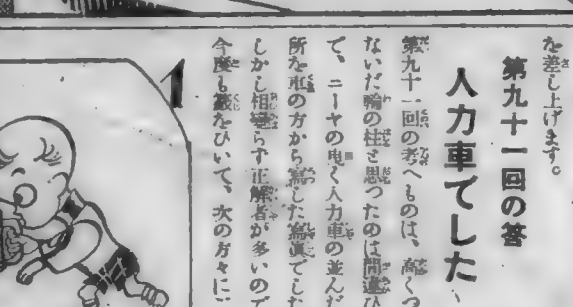 を差し上げます。
第九十一回の答
人力車でした
第九十一回の考へものは、高くつ
ないだ輪の柱と思つたのは間違ひ
て、ニーヤの曳く人力車の並んだ
所を車の方から寫した寫眞でした
しかし相變らず正解者が多いので
今度も籤をひいて、次の方々に
1